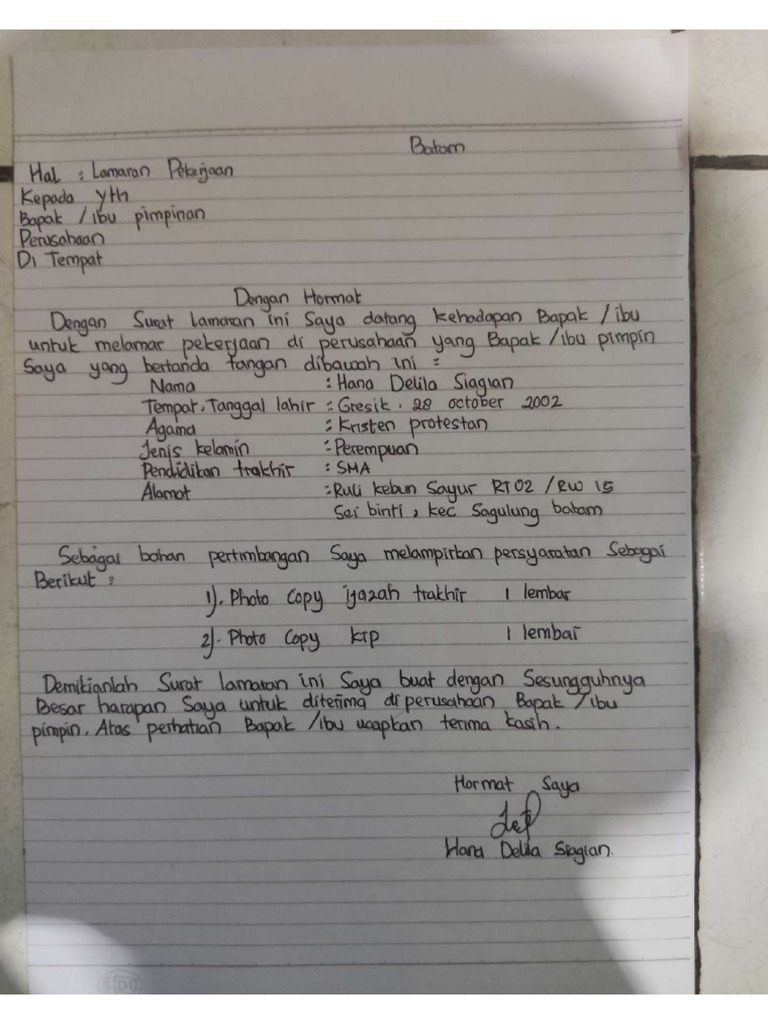 Batam
Hal : Lamaran Pekerjaan
Kepada Yth
Bapak / ibu pimpinan
Perusahaan
Di Tempat
Dengan Hormat
Dengan Surat lamaran ini Saya datang kehadapan Bapak / ibu
untuk melamar pekerjaan di perusahaan yang Bapak / ibu pimpin
Saya yang bertanda tangan dibawah ini :
Nama : Hana Delila Siagian
Tempat, Tanggal lahir : Gresik. 28 october 2002
Agama : Kristen protestan
Jenis kelamin : Perempuan
Pendidikan trakhir : SMA
Alamat : Ruli kebun Sayur RT 02 / RW 15
Sei binti, kec Sagulung batam
Sebagai bahan pertimbangan Saya melampirkan persyaratan Sebagai
Berikut :
1). Photo Copy ijazah trakhir 1 lembar
2). Photo Copy KTP 1 lembar
Demikianlah Surat lamaran ini Saya buat dengan Sesungguhnya
Besar harapan Saya untuk diterima di perusahaan Bapak / ibu
pimpin. Atas perhatian Bapak / ibu ucapkan terima kasih.
Hormat Saya
Hana Delila Siagian.